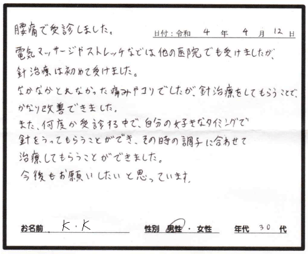 腰痛で受診しました。
日付：令和 4 年 4月 12日
電気マッサージやストレッチなどは他の医院でも受けましたが、
針治療は初めて受けました。
なかなかとれなかった痛みやコリでしたが、針治療をしてもらうことで、
かなり改善できました。
また、何度か受診する中で、自分の好きなタイミングで
針をうってもらうことができ、その時の調子に合わせて
治療してもらうことができました。
今後もお願いしたいと思っています。
お名前 K.K 性別 男性・女性 年代 30代